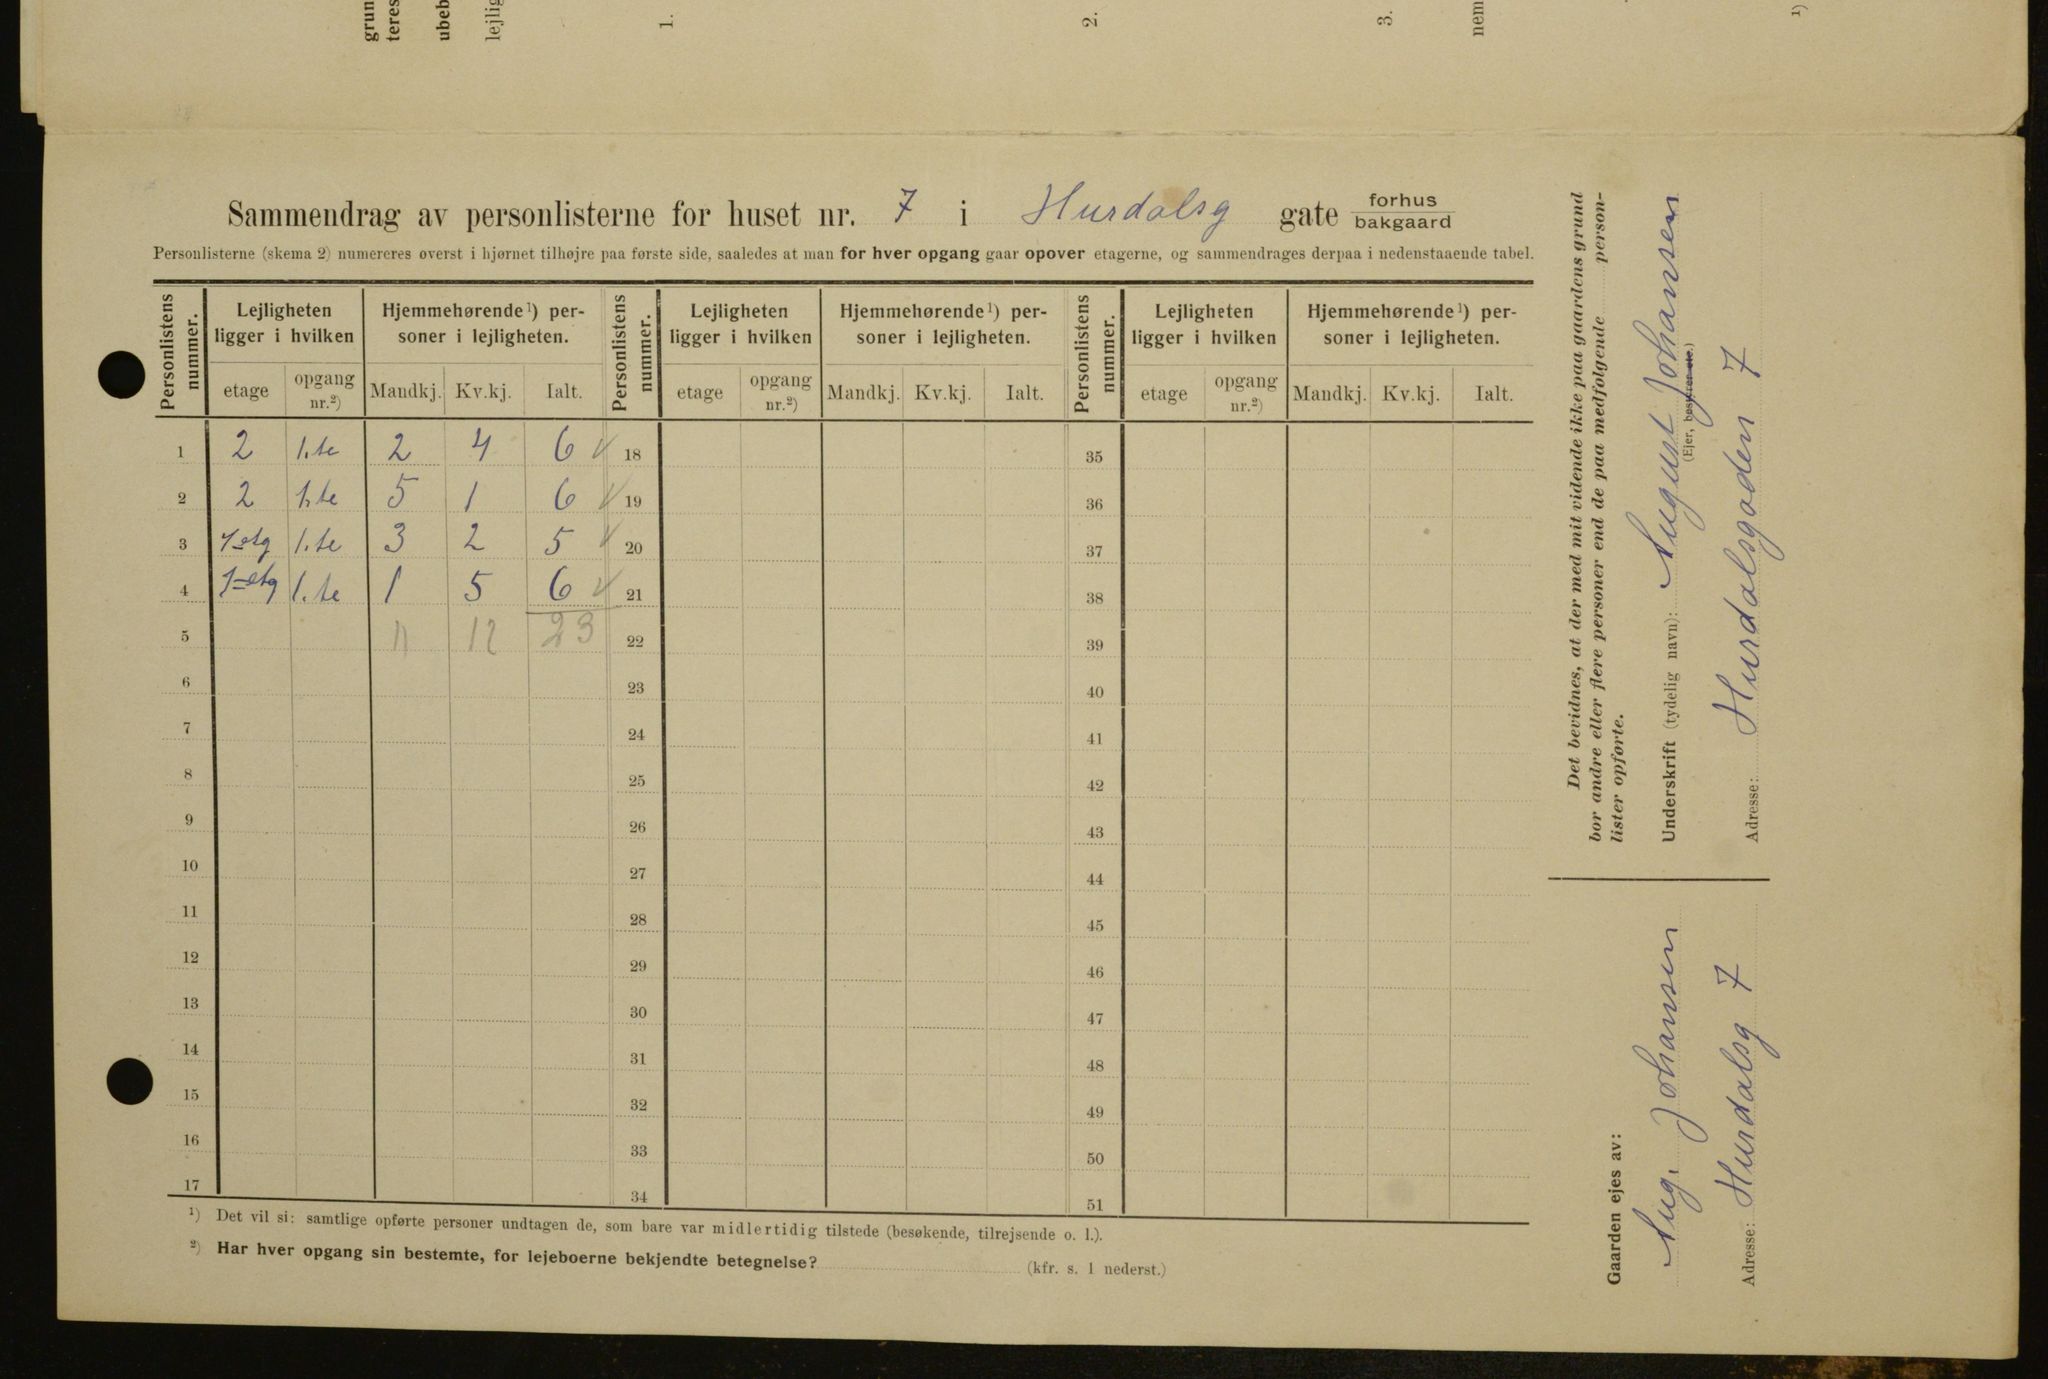 grun
teres
ubeb
lejlig
1.
2.
3.
nem
1)
Sammendrag av personlisterne for huset nr. 7 i Hurdalsg gate forhus bakgaard
Personlisterne (skema 2) numereres øverst i hjørnet tilhøjre paa første side, saaledes at man for hver opgang gaar opover etagerne, og sammendrages derpaa i nedenstaaende tabel.
Personlistens nummer. Lejligheten ligger i hvilken Hjemmehørende 1) personer i lejligheten. Personlistens nummer. Lejligheten ligger i hvilken Hjemmehørende 1) personer i lejligheten. Personlistens nummer. Lejligheten ligger i hvilken Hjemmehørende 1) personer i lejligheten.
etage opgang nr.2) Mandkj. Kv.kj. Ialt. etage opgang nr.2) Mandkj. Kv.kj. Ialt. etage opgang nr.2) Mandkj. Kv.kj. Ialt.
1 2 1.te 2 4 6 18 35
2 2 1.te 5 1 6 19 36
3 1 etg 1.te 3 2 5 20 37
4 1 etg 1.te 1 5 6 21 38
5 11 12 23 22 39
6 23 40
7 24 41
8 25 42
9 26 43
10 27 44
11 28 45
12 29 46
13 30 47
14 31 48
15 32 49
16 33 50
17 34 51
1) Det vil si: samtlige opførte personer undtagen de, som bare var midlertidig tilstede (besøkende, tilrejsende o. l.).
2) Har hver opgang sin bestemte, for lejeboerne bekjendte betegnelse? (kfr. s. 1 nederst.)
Det bevidnes, at der med mit vidende ikke paa gaardens grund
bor andre eller flere personer end de paa medfølgende person-
lister opførte.
Underskrift (tydelig navn): August Johansen
(Ejer, bestyrer ete.)
Adresse: Hurdalsgaden 7
Gaarden ejes av:
Aug. Johansen
Adresse: Hurdalsg 7